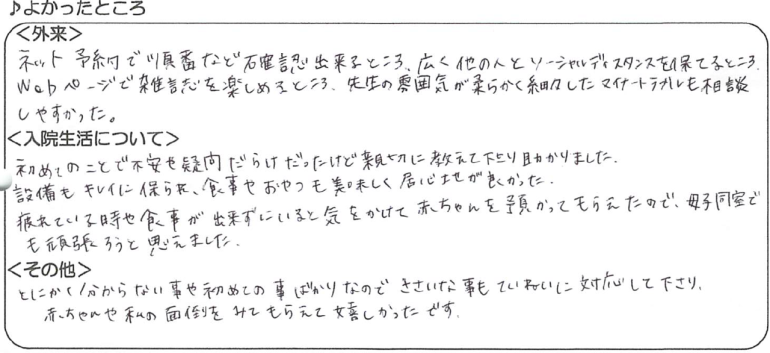 ♪よかったところ
＜外来＞
ネット予約で順番など確認出来るところ、広く他の人とソーシャルディスタンスを保てるところ、
Webページで雑誌を楽しめるところ、先生の雰囲気が柔らかく細々したマイナートラブルも相談
しやすかった。
＜入院生活について＞
初めてのことで不安や疑問だらけだったけど親切に教えて下さり助かりました。
設備もキレイに保られ、食事やおやつも美味しく居心地が良かった。
疲れている時や食事が出来ずにいると気をかけて赤ちゃんを預かってもらえたので、母子同室で
も頑張ろうと思えました。
＜その他＞
とにかく分からない事や初めての事ばかりなのでささいな事もていねいに対応して下さり、
赤ちゃんや私の面倒をみてもらえて嬉しかったです。